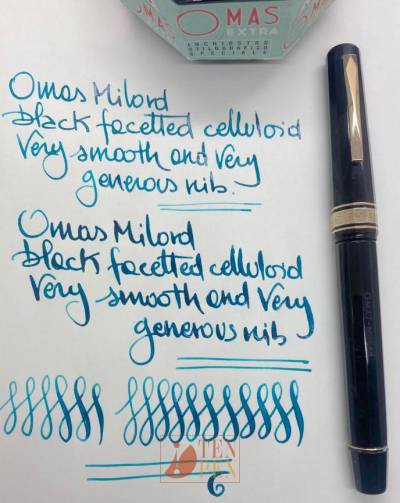 OMAS
EXTRA
INCHIOSTRO
STILOGRAFICO
SPECIALE
Omas Milord
black facetted celluloid
Very smooth and very
generous nib.
Omas Milord
black facetted celluloid
Very smooth and Very
generous nib
TEN
PEN